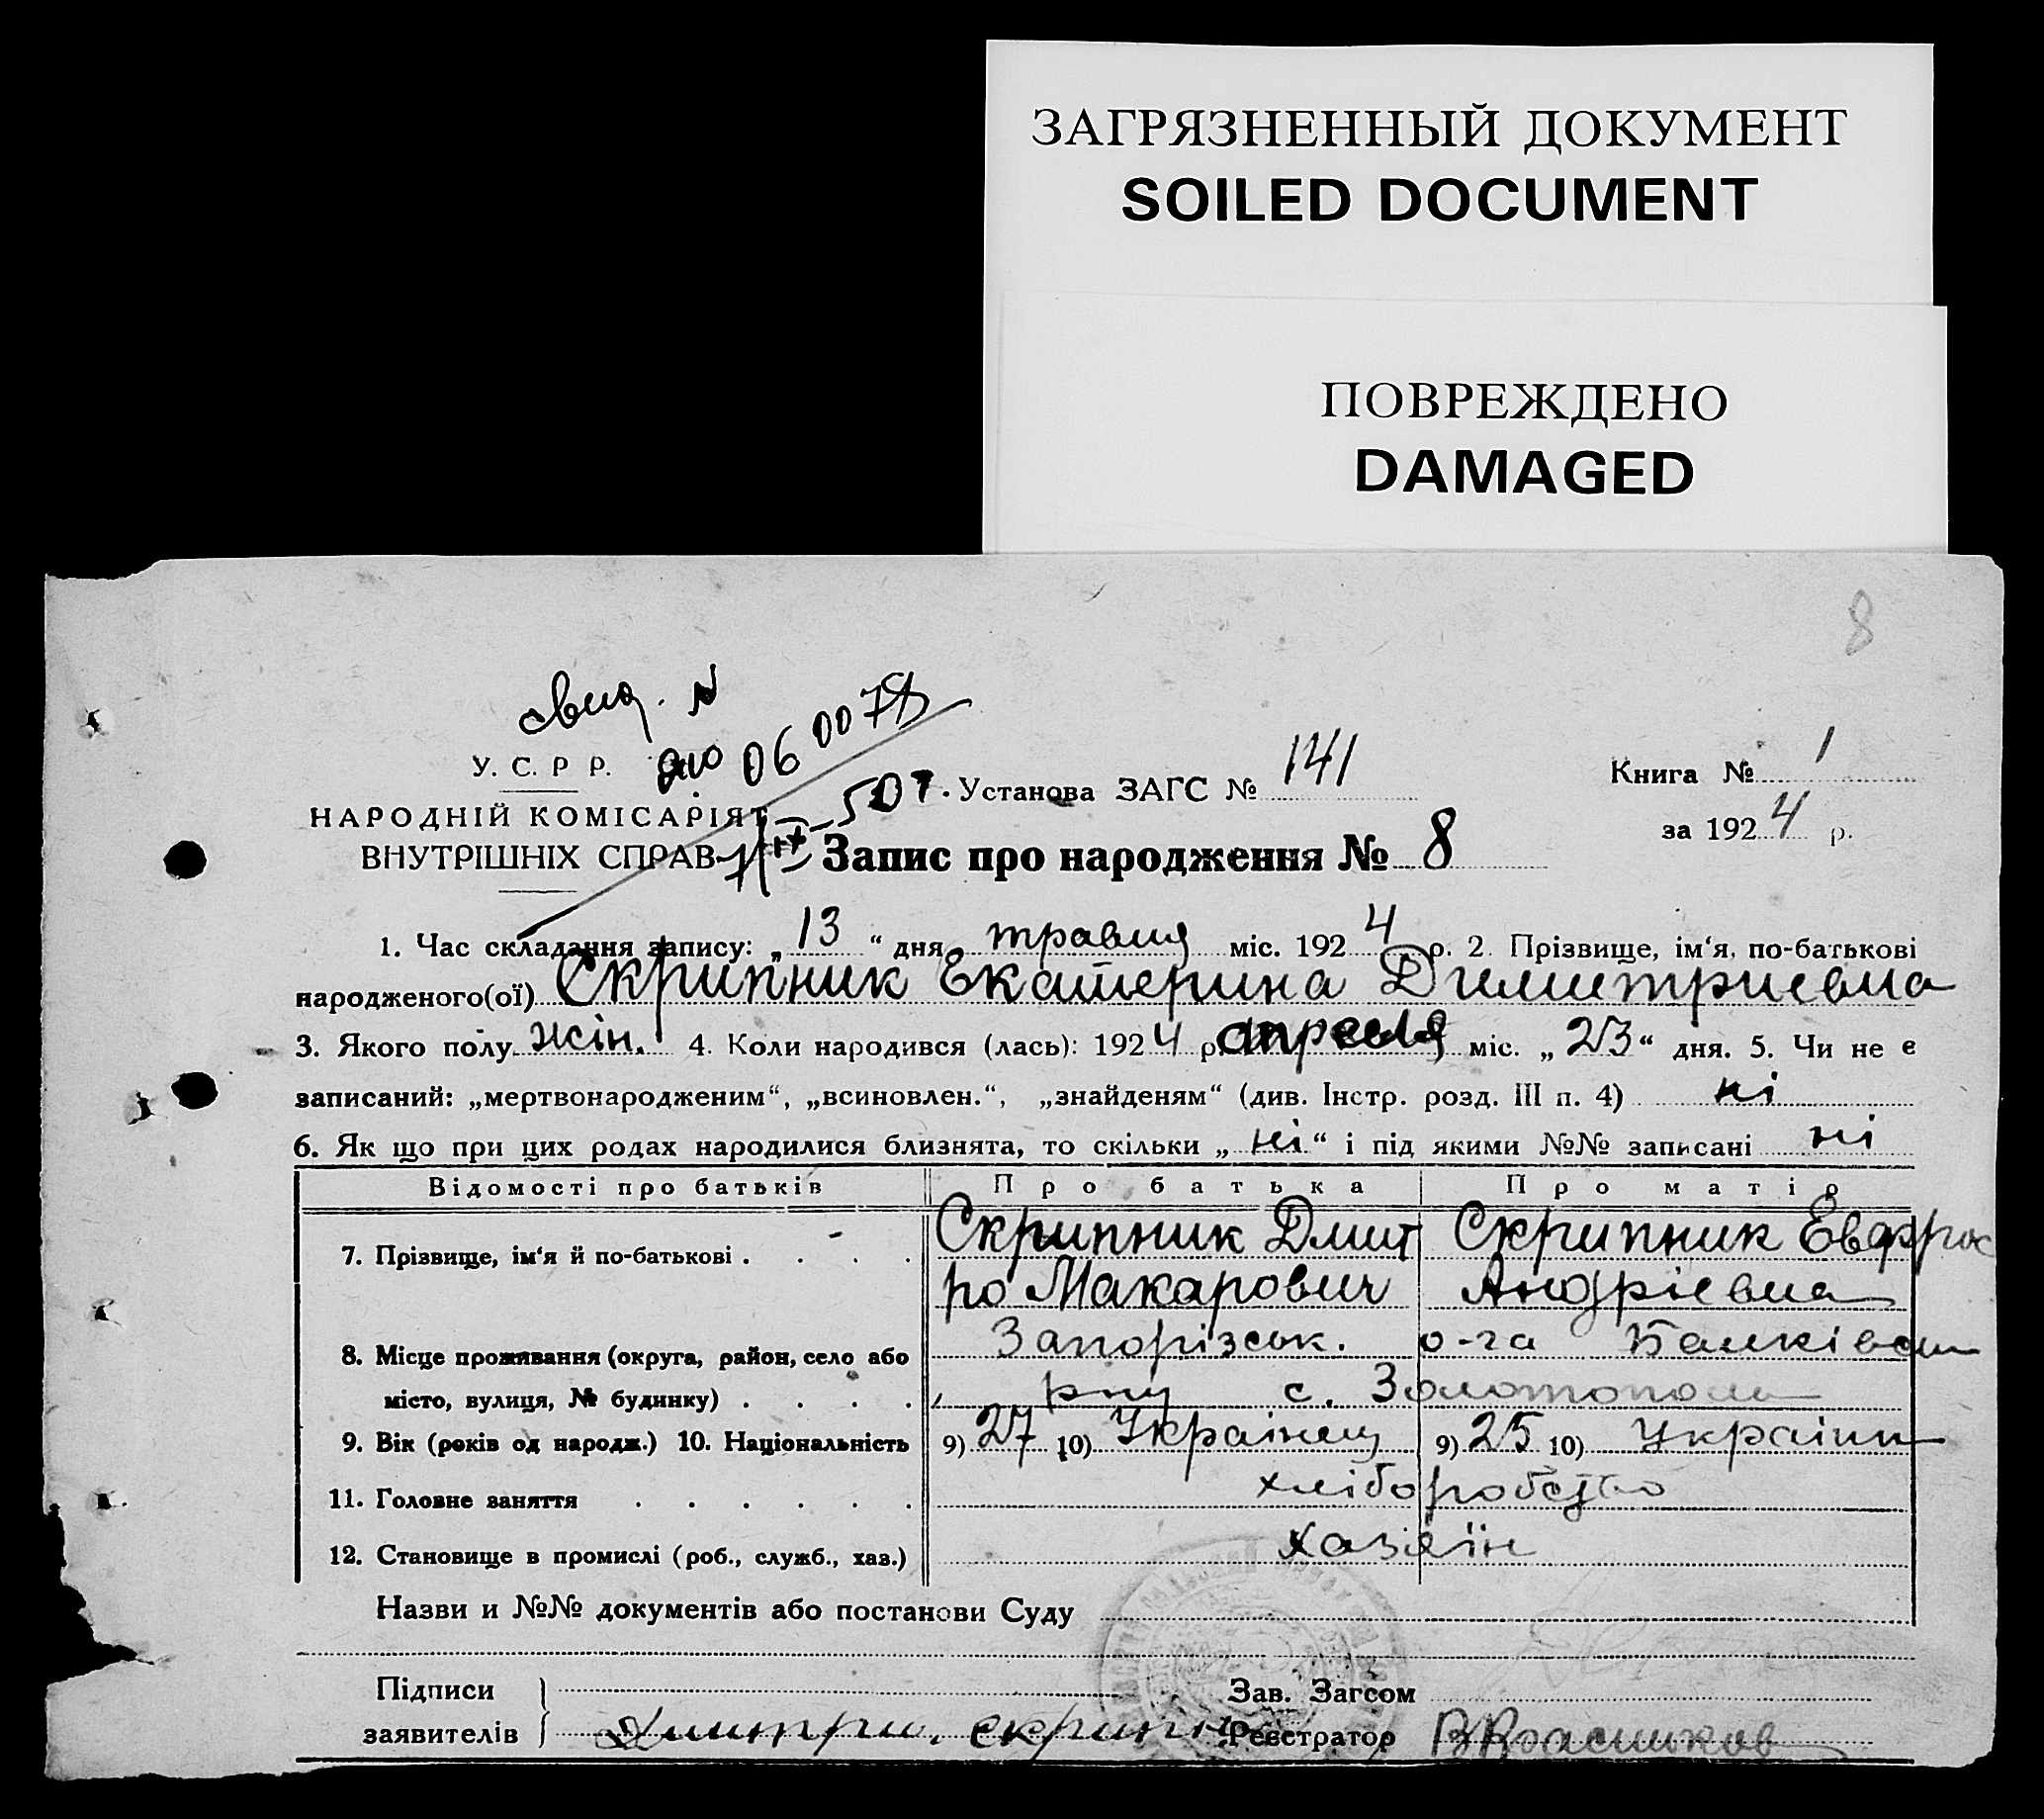 ЗАГРЯЗНЕННЫЙ ДОКУМЕНТ
SOILED DOCUMENT
ПОВРЕЖДЕНО
DAMAGED
8
свид. N
У. С. Р Р. 06 0079
507. Установа ЗАГС № 141 Книга № 1
НАРОДНІЙ КОМІСАРІЯТ за 1924 р.
ВНУТРІШНІХ СПРАВ Запис про народження № 8
1. Час складання запису: „13“ дня травня міс. 1924 р. 2. Прізвище, ім‘я, по-батькові
народженого(ої) Скрипник Екатерина Димитриевна
3. Якого полу жін. 4. Коли народився (лась): 1924 р. апреля міс. „23“ дня. 5. Чи не є
записаний: „мертвонародженим“, „всиновлен.“, „знайденям“ (див. Інстр. розд. III п. 4) ні
6. Як що при цих родах народилися близнята, то скільки „ні“ і під якими №№ записані ні
Відомості про батьків Про батька Про матір
7. Прізвище, ім‘я й по-батькові . . . . Скрипник Дмит Скрипник Евфрос
ро Макарович Андріевна
8. Місце проживання (округа, район, село або Запорізськ. о-га
місто, вулиця, № будинку) . . . . рну с. Золотополе
9. Вік (років од народж.) 10. Національність 9) 27 10) Украінец 9) 25 10) Украінк
11. Головне заняття . . . . . . хліборобство
12. Становище в промислі (роб., служб., хаз.) хазяїн
Назви и №№ документів або постанови Суду
Підписи Зав. Загсом
заявителів Дмитри. скрипн Реєстратор